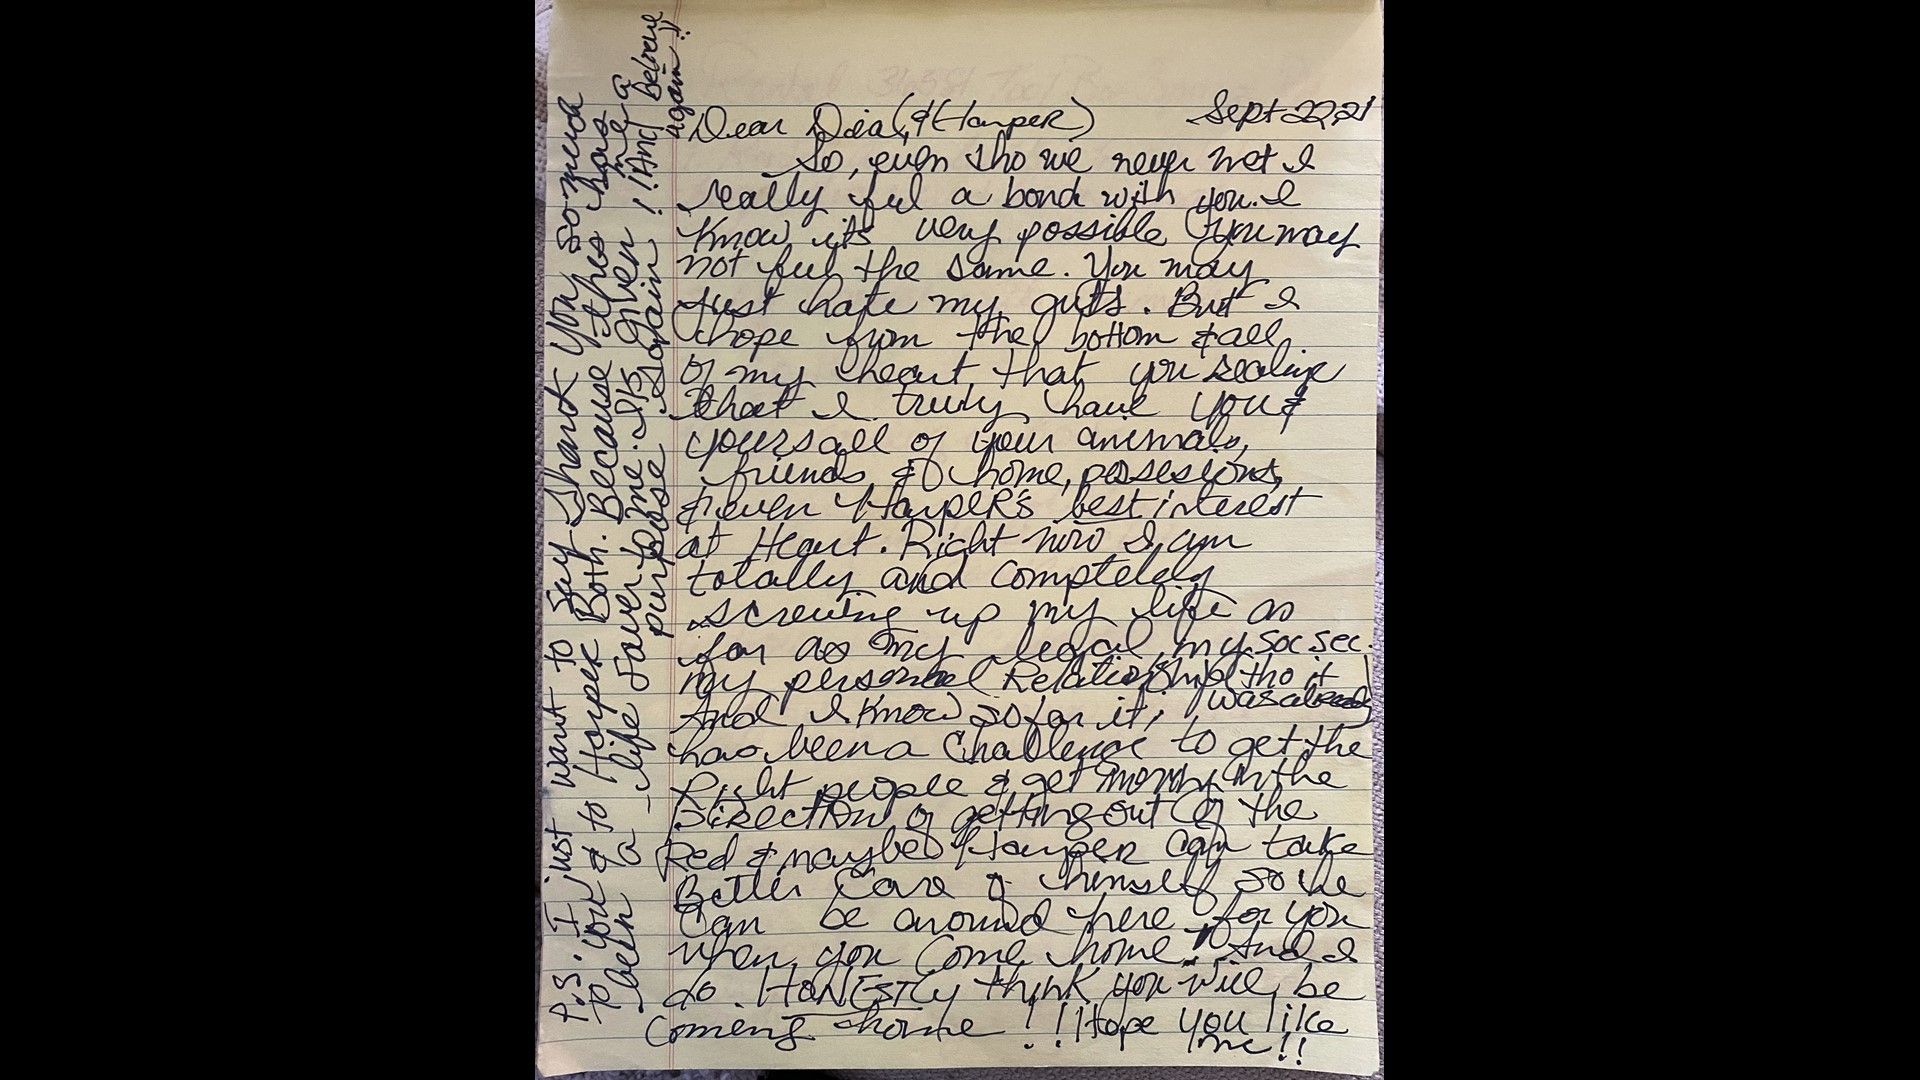 Sept 22, 21
Dear Dea, (& Harper)
So, even tho we never met I
really feel a bond with you. I
know its very possible you may
not feel the same. You may
just hate my guts. But I
hope from the bottom & all
of my heart, that you realize
that I truly have you &
yours all of your animals,
friends, & home, possesions,
& even Harper's best interest
at Heart. Right now I am
totally and completely
screwing up my life as
far as my legal, my soc sec.
my personal Relationship (tho it
was already)
And I know so far it,
has been a challenge to get the
Right people & get moving in the
Direction of getting out of the
Red & maybe Harper can take
Better Care of himself so he
can be around here for you
when you come home. And I
do HONESTLy think you will be
comeing home!! Hope you like
me!!
P.S. I just want to say Thank you so much
to you & to Harper Both. Because this has
been a life saver to me. Its given me a
purpose again!! And believe
again!!